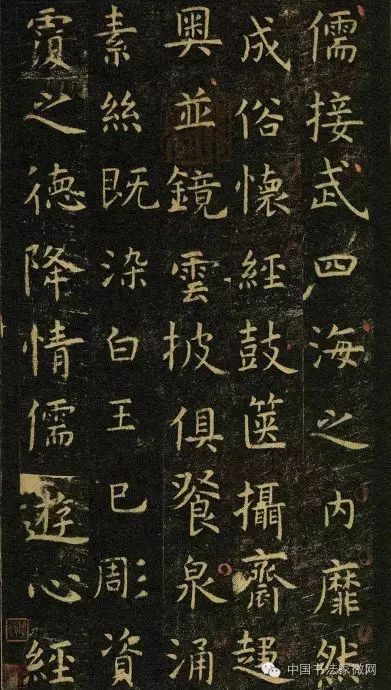 儒接武四海之内靡然
成俗懷經鼓篋攝齋趍
奧並鏡雲披俱餐泉涌
素絲既染白王已彫資
覆之德降情儒遊心經
中国书法家微网